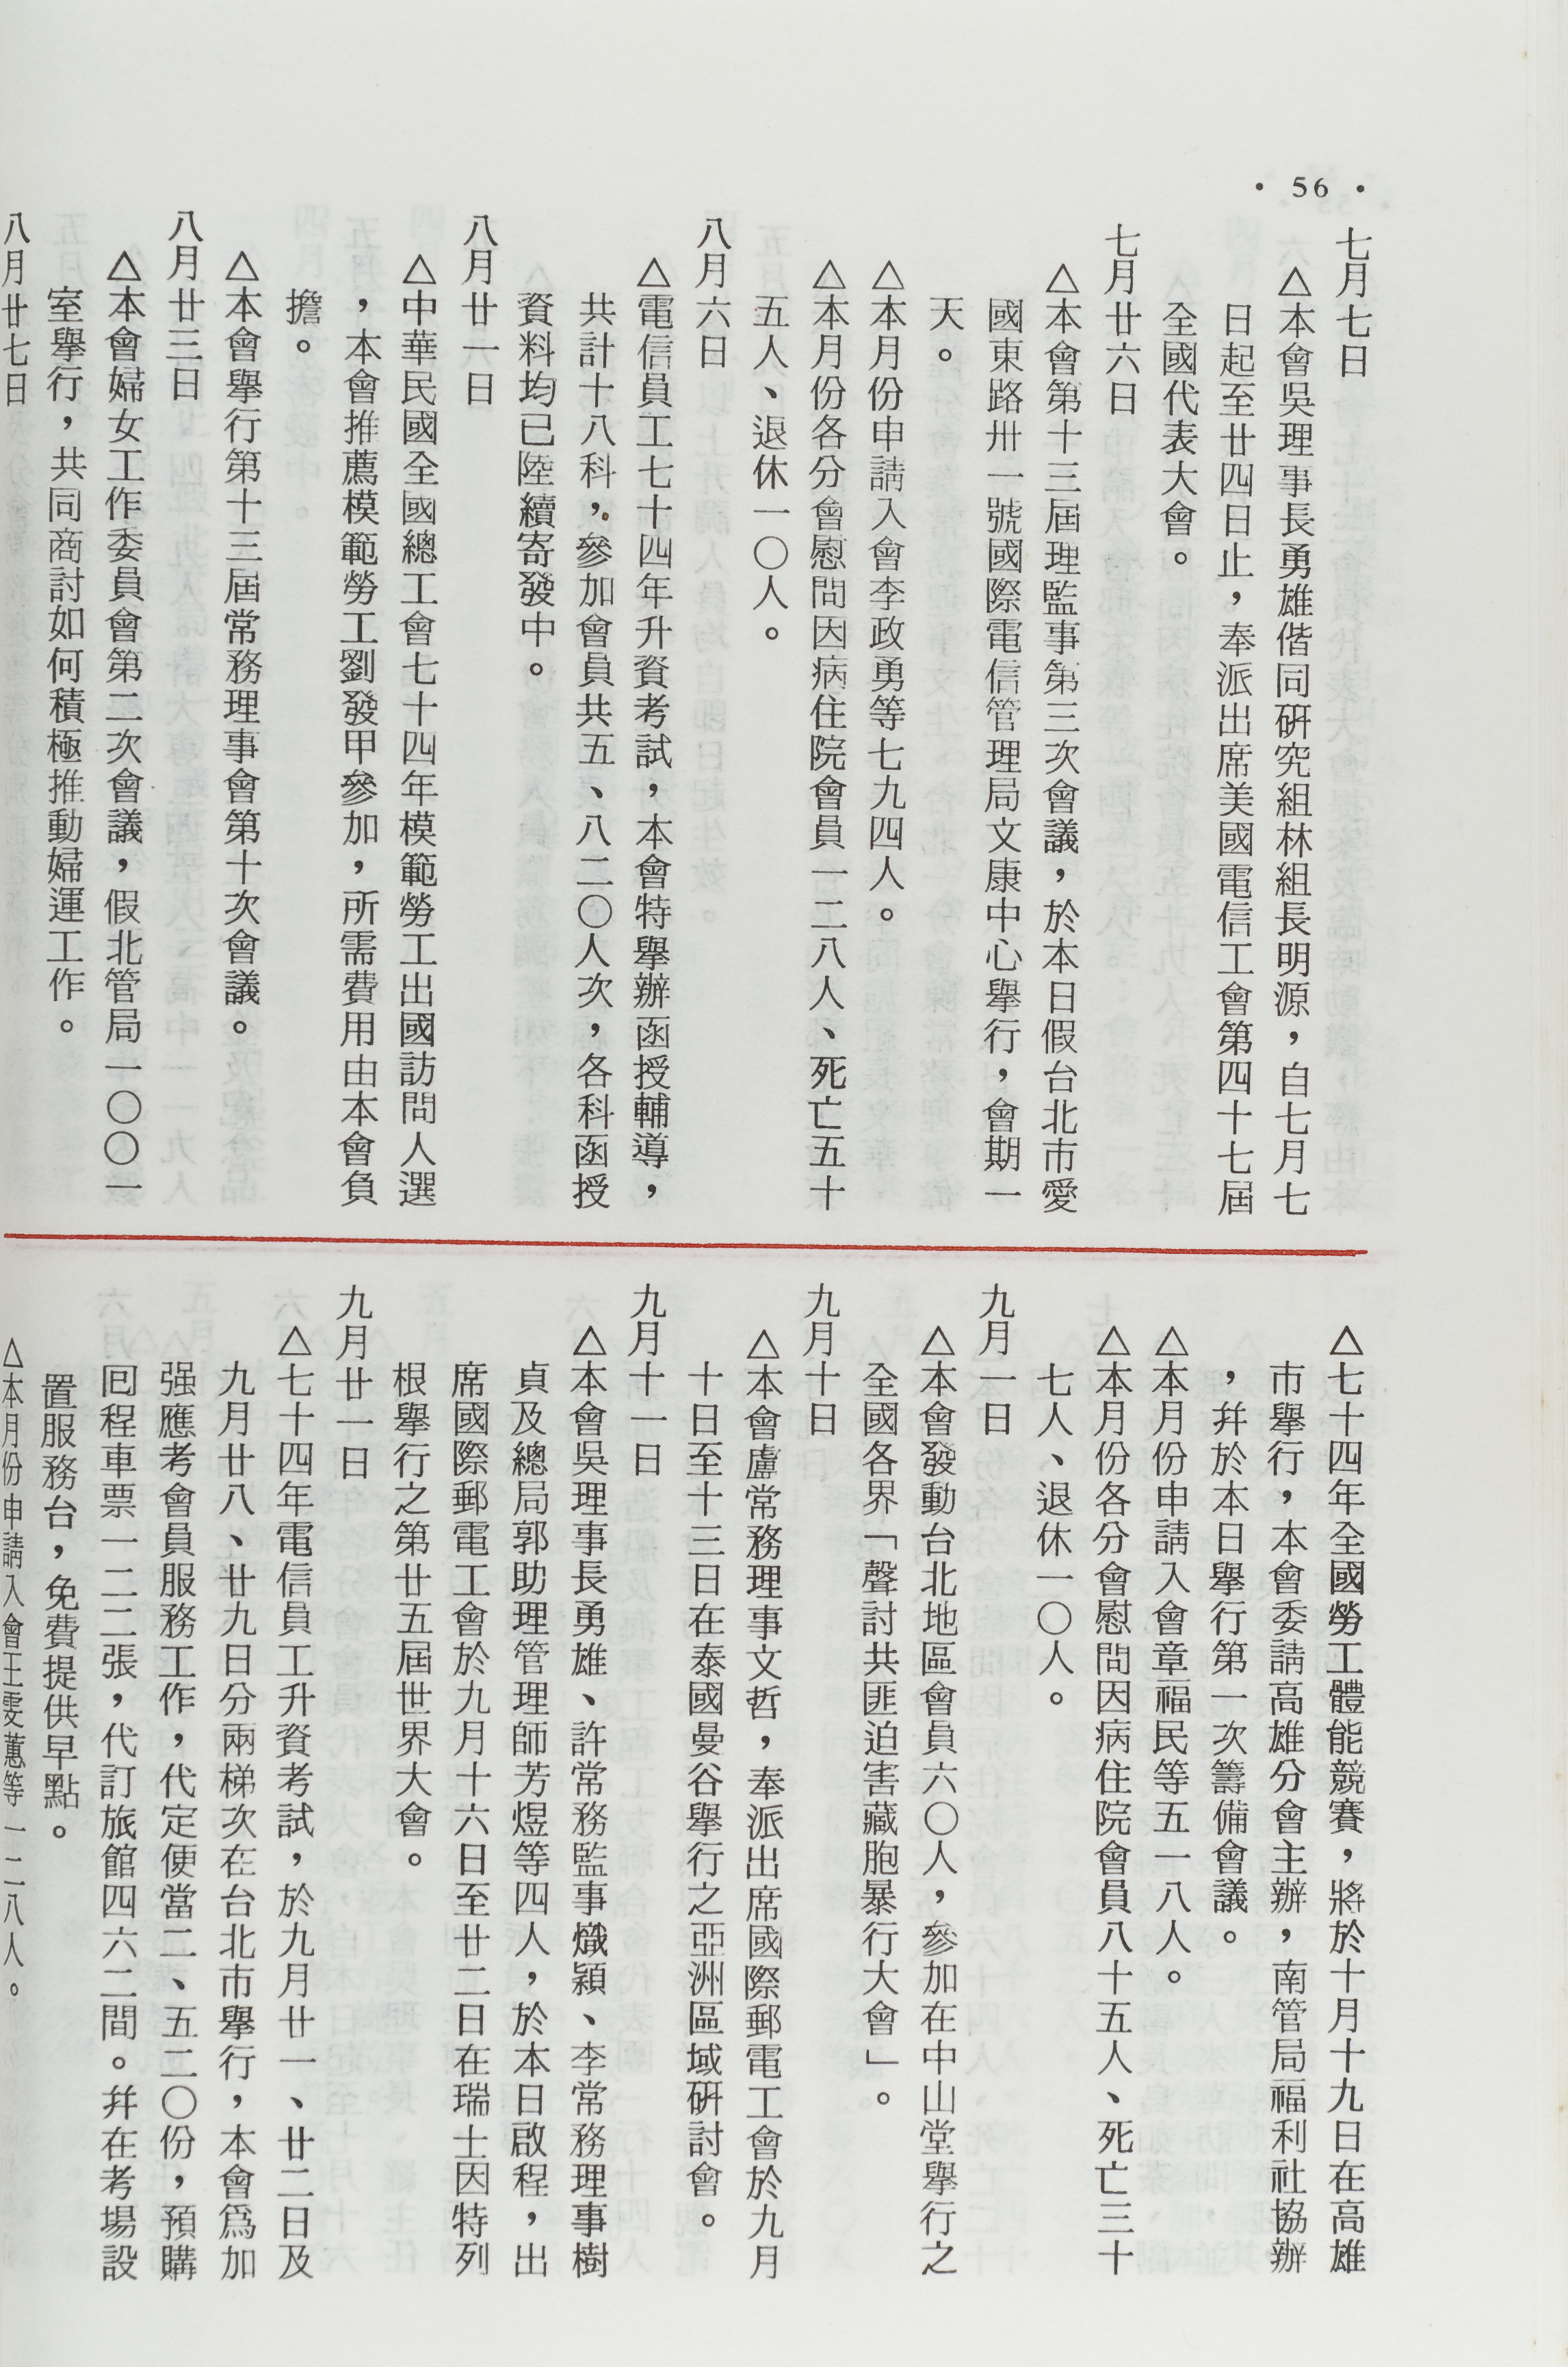 • 56 •
七月七日
△本會吳理事長勇雄偕同硏究組林組長明源，自七月七
日起至廿四日止，奉派出席美國電信工會第四十七屆
全國代表大會。
七月廿六日
△本會第十三屆理監事第三次會議，於本日假台北市愛
國東路卅一號國際電信管理局文康中心舉行，會期一
天。
△本月份申請入會李政勇等七九四人。
△本月份各分會慰問因病住院會員一二八人、死亡五十
五人、退休一〇人。
八月六日
△電信員工七十四年升資考試，本會特舉辦函授輔導，
共計十八科，參加會員共五、八二〇人次，各科函授
資料均已陸續寄發中。
八月廿一日
△中華民國全國總工會七十四年模範勞工出國訪問人選
，本會推薦模範勞工劉發甲參加，所需費用由本會負
擔。
△本會舉行第十三屆常務理事會第十次會議。
八月廿三日
△本會婦女工作委員會第二次會議，假北管局一〇〇一
室舉行，共同商討如何積極推動婦運工作。
八月廿七日
△七十四年全國勞工體能競賽，將於十月十九日在高雄
市舉行，本會委請高雄分會主辦，南管局福利社協辦
，幷於本日舉行第一次籌備會議。
△本月份申請入會章福民等五一八人。
△本月份各分會慰問因病住院會員八十五人、死亡三十
七人、退休一〇人。
九月一日
△本會發動台北地區會員六〇人，參加在中山堂舉行之
全國各界「聲討共匪迫害藏胞暴行大會」。
九月十日
△本會盧常務理事文哲，奉派出席國際郵電工會於九月
十日至十三日在泰國曼谷舉行之亞洲區域硏討會。
九月十一日
△本會吳理事長勇雄、許常務監事熾穎、李常務理事樹
貞及總局郭助理管理師芳煜等四人，於本日啟程，出
席國際郵電工會於九月十六日至廿二日在瑞士因特列
根舉行之第廿五屆世界大會。
九月廿一日
△七十四年電信員工升資考試，於九月廿一、廿二日及
九月廿八、廿九日分兩梯次在台北市舉行，本會爲加
强應考會員服務工作，代定便當二、五二〇份，預購
囘程車票一二二張，代訂旅館四六二間。幷在考場設
置服務台，免費提供早點。
△本月份申請入會王雯蕙等一二八人。